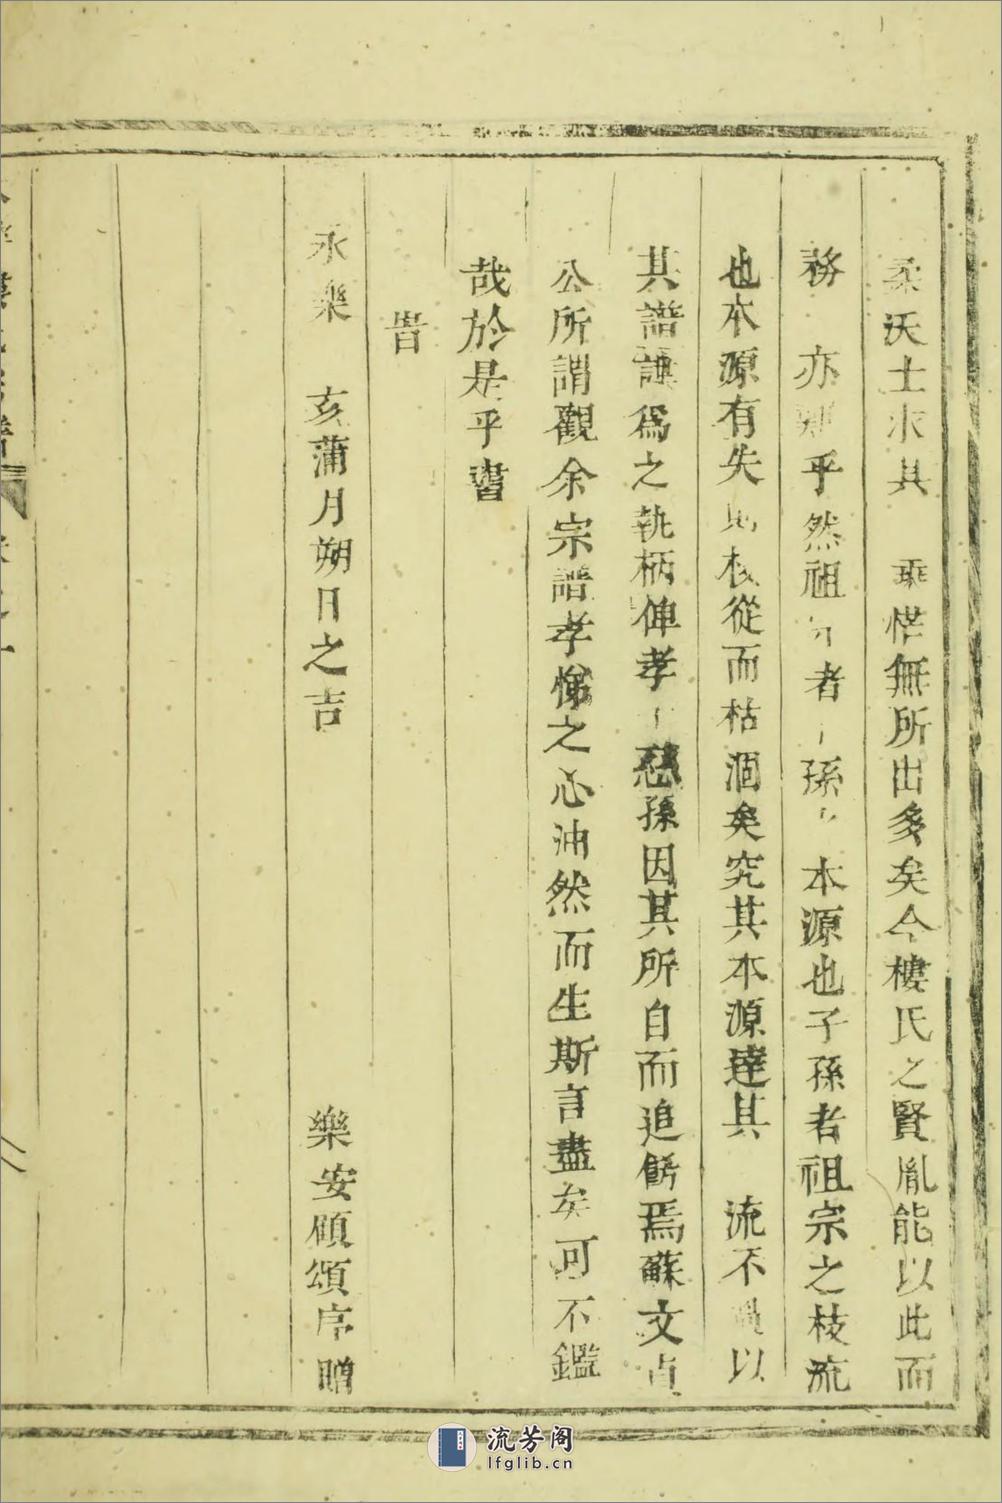 柔沃土求其 乘惜無所出多矣今樓氏之賢胤能以此而
務 亦難乎然祖 者 孫 本源也子孫者祖宗之枝流
也本源有失則枝從而枯涸矣究其本源達其 流不 以
其譜讓爲之執柄俾孝 慈孫因其所自而追 焉蘇文貞
公所謂觀余宗譜孝悌之心油然而生斯言盡矣可不鑑
哉於是乎書
旹
永樂 亥蒲月朔日之吉 樂安顧頌序贈
流芳阁
lfglib.cn